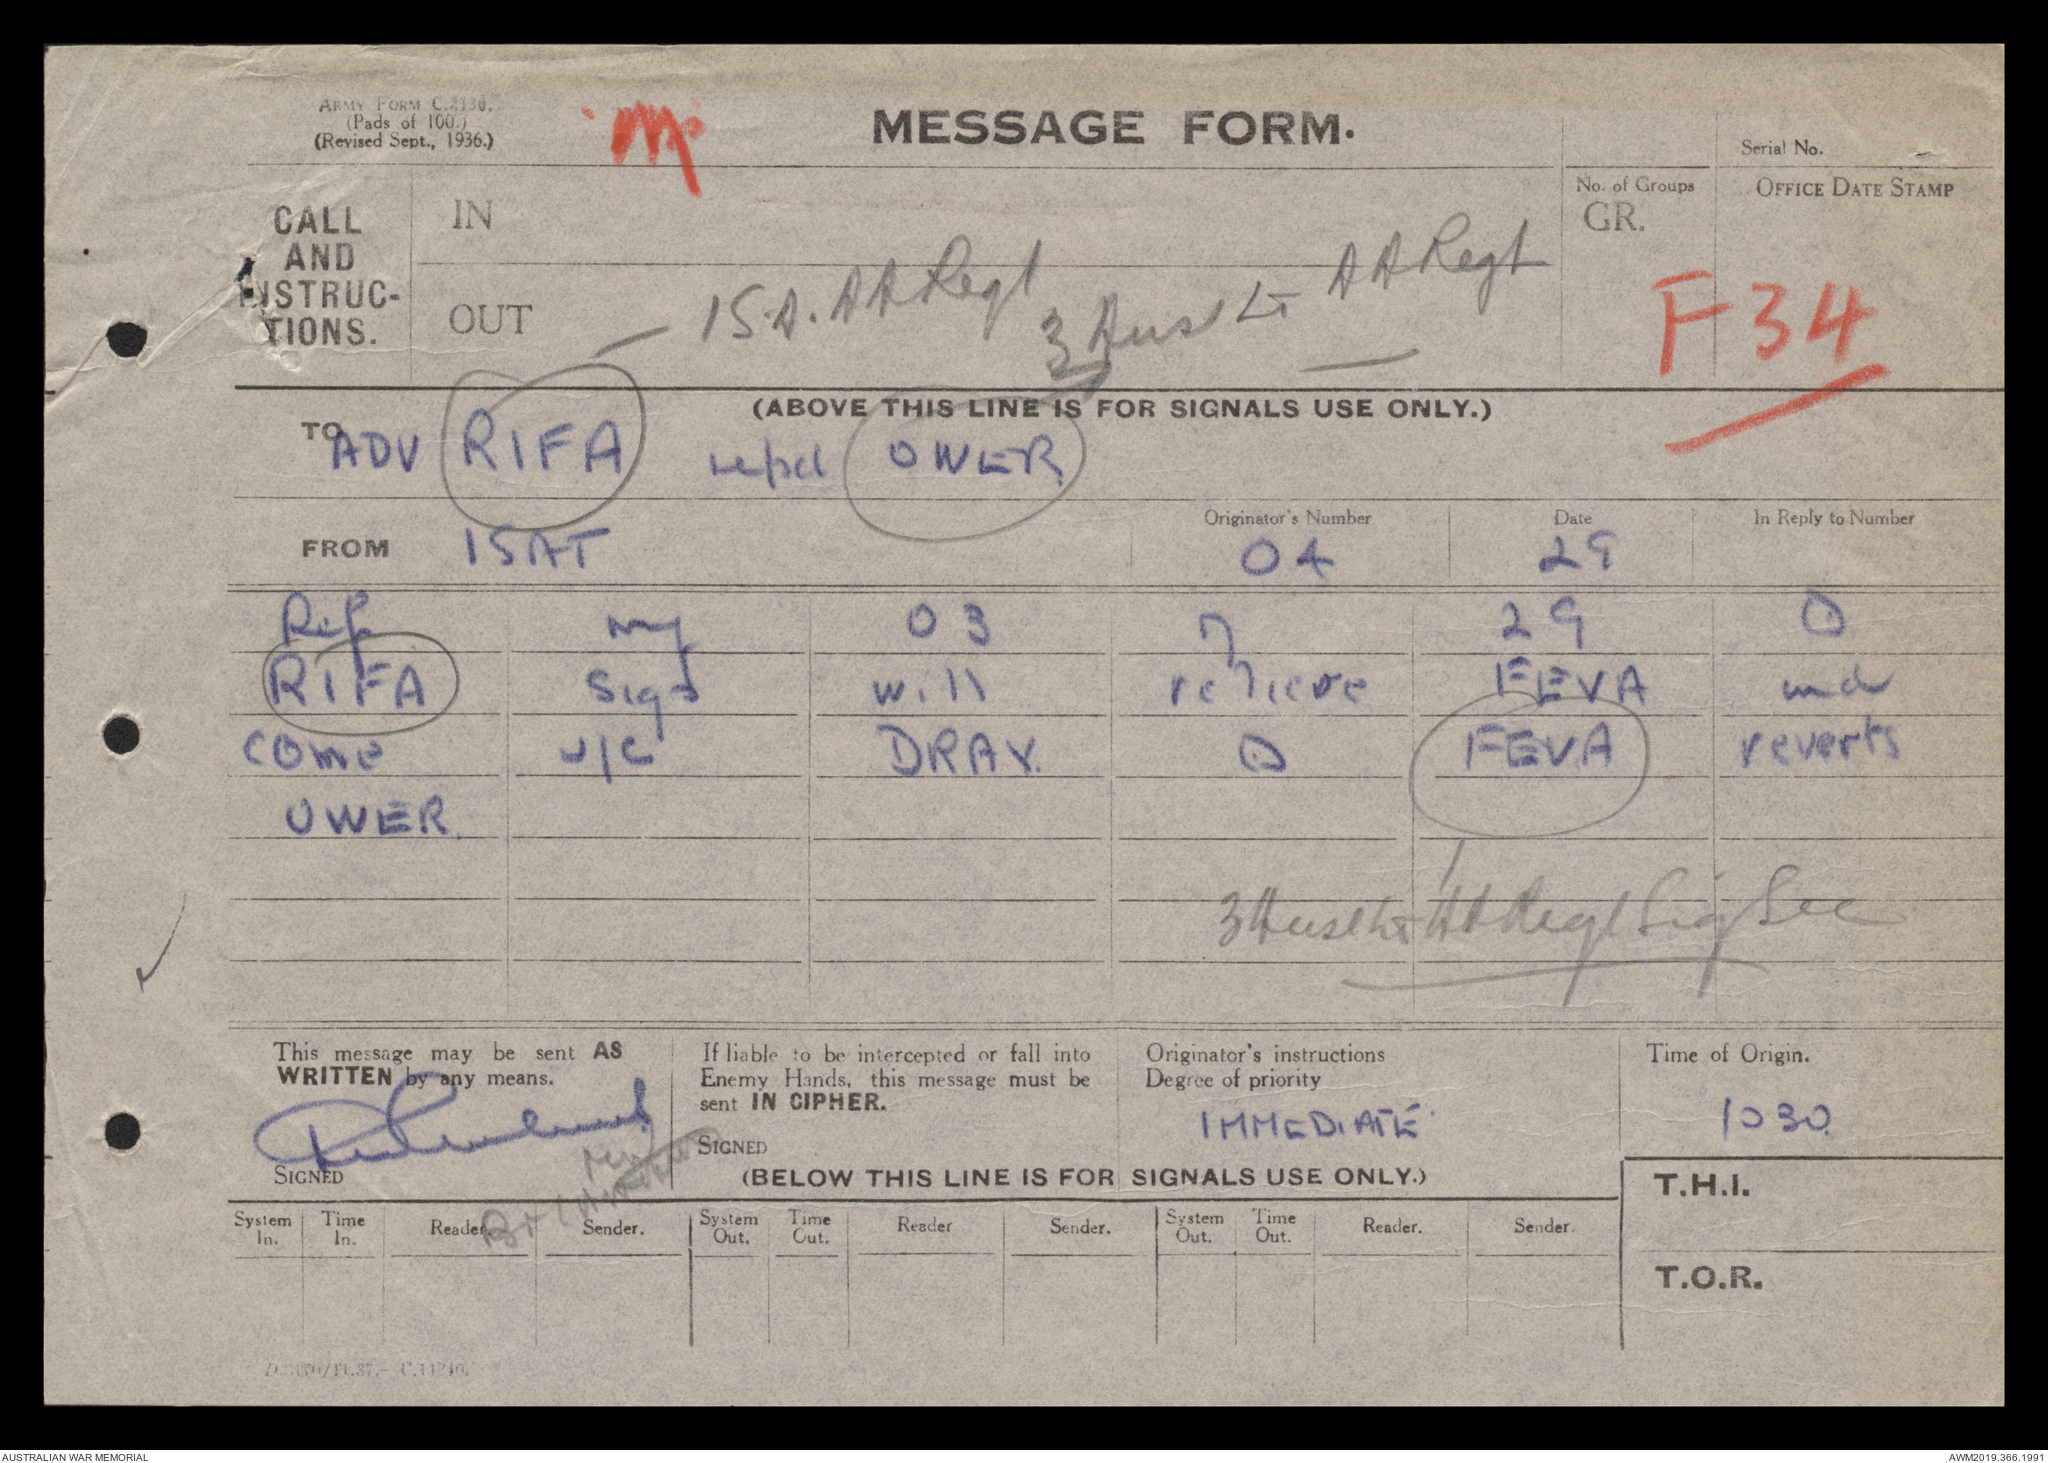 ARMY FORM C.2136.
(Pads of 100.)
(Revised Sept., 1936.)
m
MESSAGE FORM.
Serial No.
CALL
AND
INSTRUC-
TIONS.
IN
OUT
No. of Groups
GR.
OFFICE DATE STAMP
15.A. AA Regt
3 Aust Lt AA Regt
F 34
(ABOVE THIS LINE IS FOR SIGNALS USE ONLY.)
TO ADV RIFA repd OWER
FROM ISAT
Originator's Number
04
Date
29
In Reply to Number
Ref my 03 of 29 O
RIFA Sigs will relieve FEVA and
come u/c DRAY. O FEVA reverts
OWER.
3 Aust Lt AA Regt Sig Sec
This message may be sent AS
WRITTEN by any means.
SIGNED
If liable to be intercepted or fall into
Enemy Hands, this message must be
sent IN CIPHER.
SIGNED
Originator's instructions
Degree of priority
IMMEDIATE
Time of Origin.
1030
(BELOW THIS LINE IS FOR SIGNALS USE ONLY.)
T.H.I.
System In. Time In. Reader. Sender. System Out. Time Out. Reader Sender. System Out. Time Out. Reader. Sender.
T.O.R.
AUSTRALIAN WAR MEMORIAL
AWM2019.366.1991